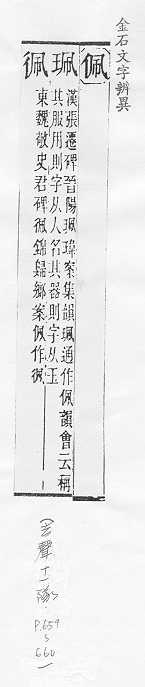 金石文字辨異
佩
珮
漢張遷碑晉陽珮瑋案集韻珮通作佩韻會云稱
其服用則字从人名其器則字从玉
東魏敬史君碑錦歸鄉案佩作
(去聲十一隊)
P.659
660